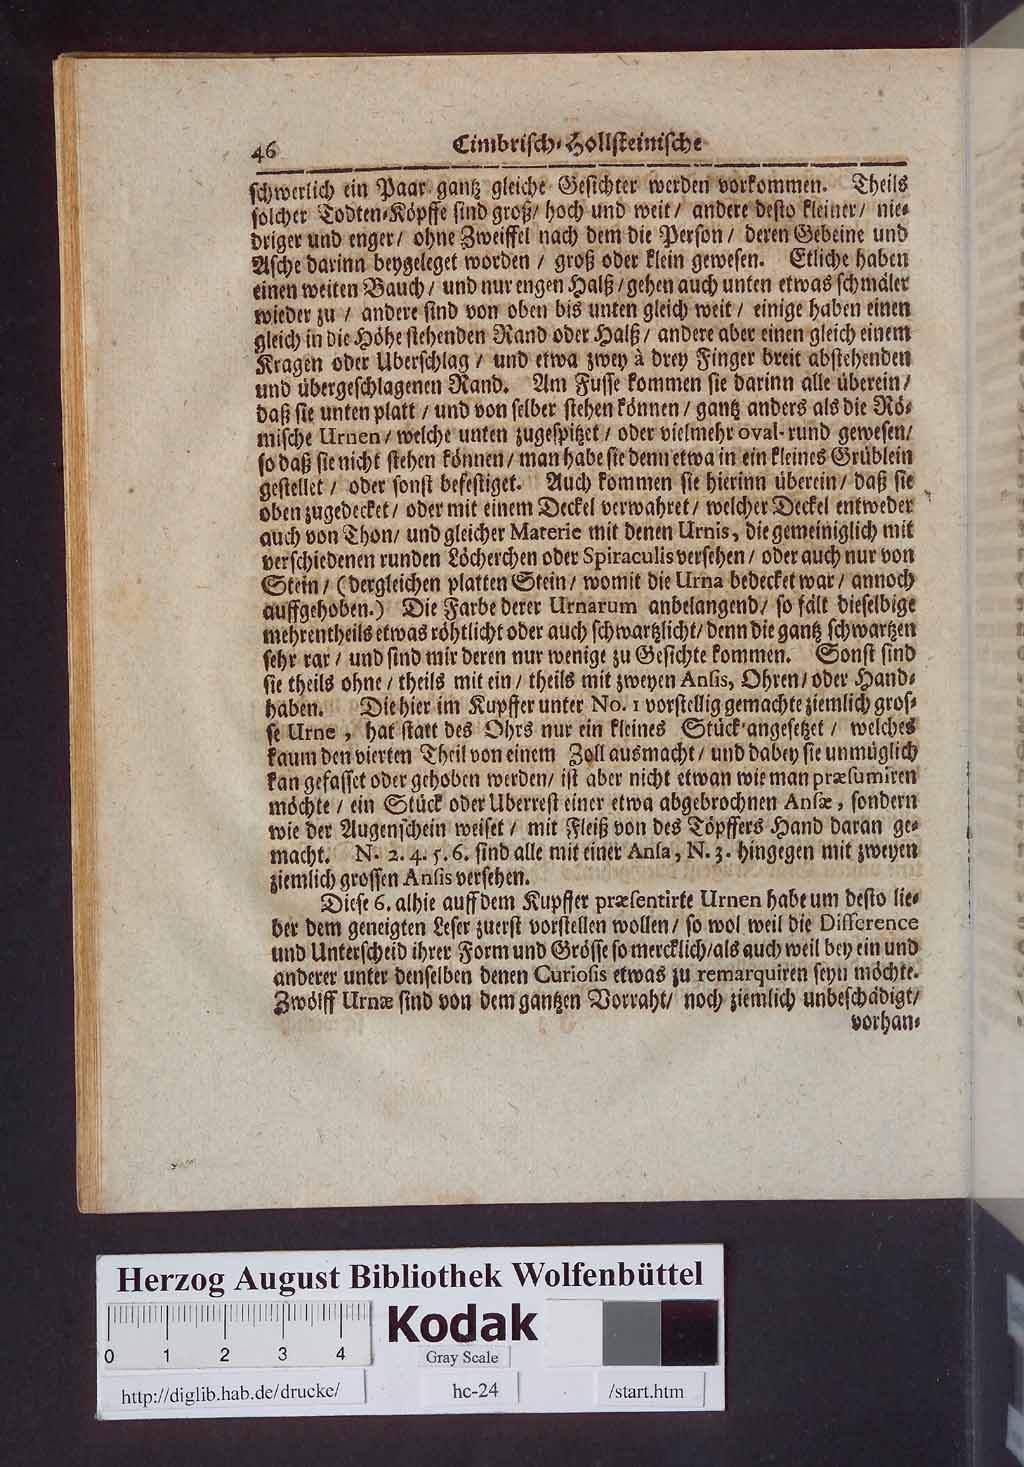 46 Cimbrisch-Hollsteinische
schwerlich ein Paar gantz gleiche Gesichter werden vorkommen. Theils
solcher Todten-Köpffe sind groß/ hoch und weit/ andere desto kleiner/ nie-
driger und enger/ ohne Zweiffel nach dem die Person/ deren Gebeine und
Asche darinn beygeleget worden / groß oder klein gewesen. Etliche haben
einen weiten Bauch/ und nur engen Halß/ gehen auch unten etwas schmäler
wieder zu / andere sind von oben bis unten gleich weit/ einige haben einen
gleich in die Höhe stehenden Rand oder Halß/ andere aber einen gleich einem
Kragen oder Uberschlag/ und etwa zwey à drey Finger breit abstehenden
und übergeschlagenen Rand. Am Fusse kommen sie darinn alle überein/
daß sie unten platt / und von selber stehen können/ gantz anders als die Rö-
mische Urnen/ welche unten zugespitzet / oder vielmehr oval-rund gewesen/
so daß sie nicht stehen können/ man habe sie denn etwa in ein kleines Grüblein
gestellet / oder sonst befestiget. Auch kommen sie hierinn überein/ daß sie
oben zugedecket/ oder mit einem Deckel verwahret/ welcher Deckel entweder
auch von Thon/ und gleicher Materie mit denen Urnis, die gemeiniglich mit
verschiedenen runden Löcherchen oder Spiraculis versehen/ oder auch nur von
Stein/ (dergleichen platten Stein/ womit die Urna bedecket war/ annoch
auffgehoben.) Die Farbe derer Urnarum anbelangend/ so fält dieselbige
mehrentheils etwas röhtlicht oder auch schwartzlicht/ denn die gantz schwartzen
sehr rar / und sind mir deren nur wenige zu Gesichte kommen. Sonst sind
sie theils ohne/ theils mit ein/ theils mit zweyen Ansis, Ohren/ oder Hand-
haben. Die hier im Kupffer unter No. 1 vorstellig gemachte ziemlich gros-
se Urne, hat statt des Ohrs nur ein kleines Stück angesetzet/ welches
kaum den vierten Theil von einem Zoll ausmacht/ und dabey sie unmüglich
kan gefasset oder gehoben werden/ ist aber nicht etwan wie man præsumiren
möchte/ ein Stück oder Uberrest einer etwa abgebrochnen Ansæ, sondern
wie der Augenschein weiset/ mit Fleiß von des Töpffers Hand daran ge-
macht. N. 2. 4. 5. 6. sind alle mit einer Ansa, N. 3. hingegen mit zweyen
ziemlich grossen Ansis versehen.
Diese 6. alhie auff dem Kupffer præsentirte Urnen habe um desto lie-
ber dem geneigten Leser zuerst vorstellen wollen/ so wol weil die Difference
und Unterscheid ihrer Form und Grösse so mercklich/ als auch weil bey ein und
anderer unter denselben denen Curiosis etwas zu remarquiren seyn möchte.
Zwölff Urnæ sind von dem gantzen Vorraht/ noch ziemlich unbeschädigt/
vorhan-
Herzog August Bibliothek Wolfenbüttel
Kodak
0 1 2 3 4
Gray Scale
http://diglib.hab.de/drucke/ hc-24 /start.htm